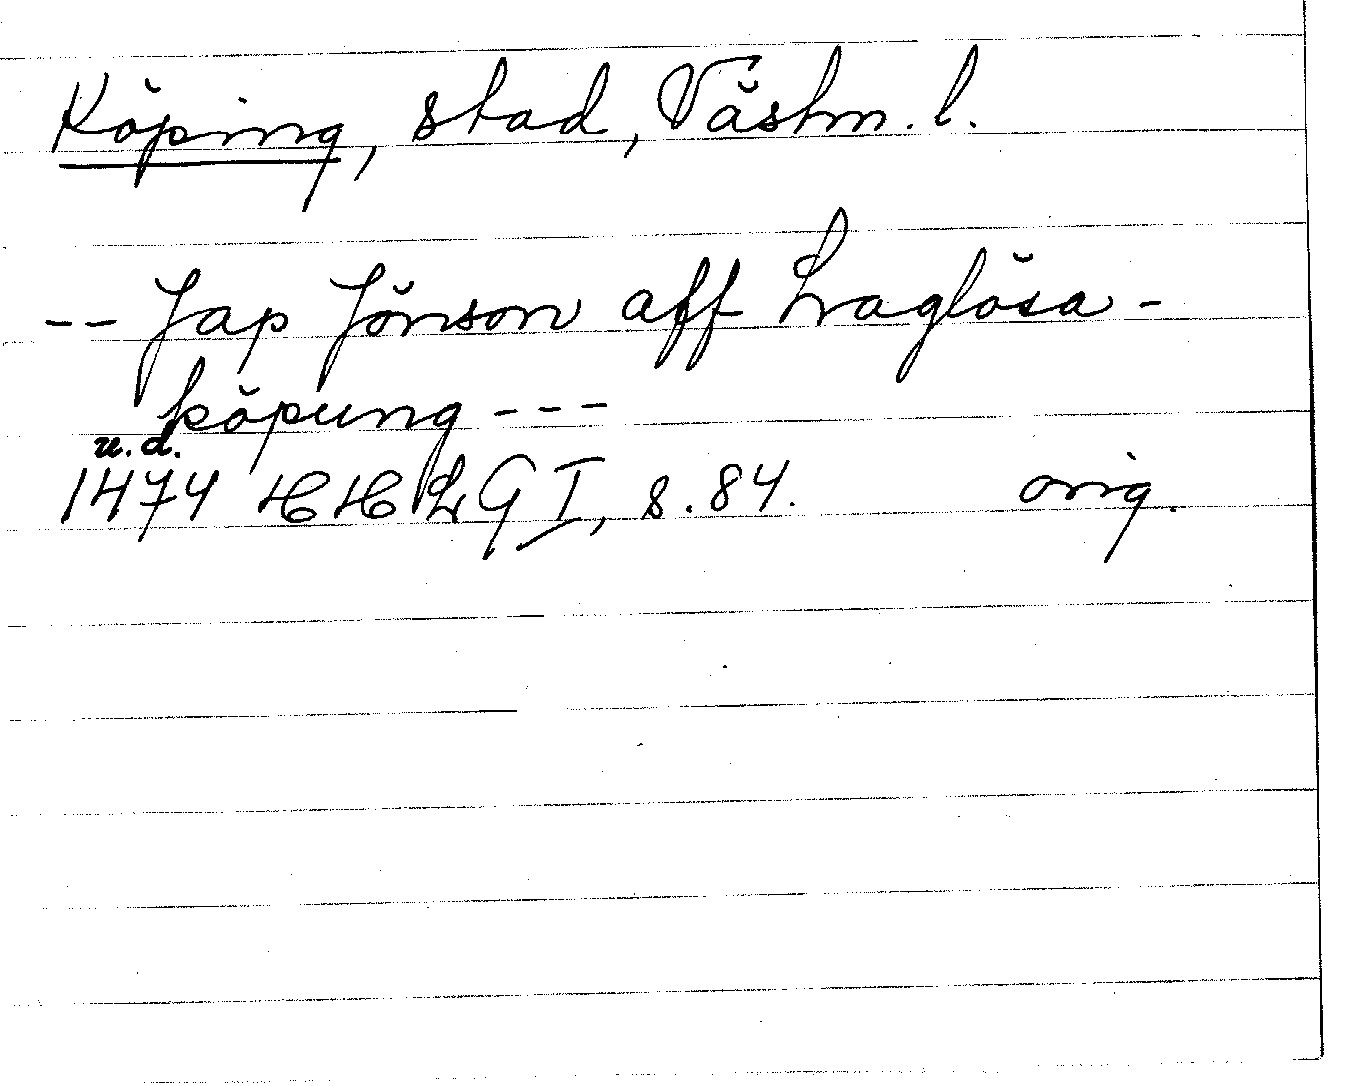 Köping, stad, Västm. l.
-- Jap Jönson aff Laglösa-
köpung ---
u.d.
1474 HHLG I, s. 84. orig.